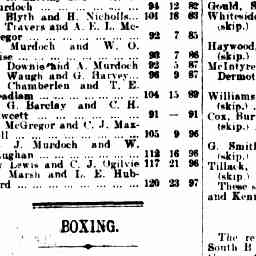 urdoch ... ... ... ... 94 12 82
Blyth and H. Nicholls... 101 18 83
Travers and A. E. L. Mc-
egor ... ... ... ... 92 7 85
Murdoch and W. O.
ise ... ... ... ... 93 7 86
Downie and A. Murdoch 92 5 87
Waugh and G. Harvey... 96 9 87
Chamberlen and T. E.
adlam ... ... ... ... 104 15 89
G. Barclay and C. H.
wcett ... ... ... ... 91 — 91
McGregor and C. J. Max-
ll ... ... ... ... 105 9 96
J. Murdoch and W.
ughan ... ... ... ... 112 16 96
Lewis and C. J. Ogilvie 117 21 96
Marsh and L. E. Hub-
rd ... ... ... ... 120 23 97
BOXING.
Gould, S
Whiteside
(skip.)
Haywood,
(skip.)
McIntyre
Dermot
Williams
(skip.)
Cox, Bur
(skip.)
G. Smith
(skip.)
Tillack,
(skip.)
These s
and Kenn
The re
South B